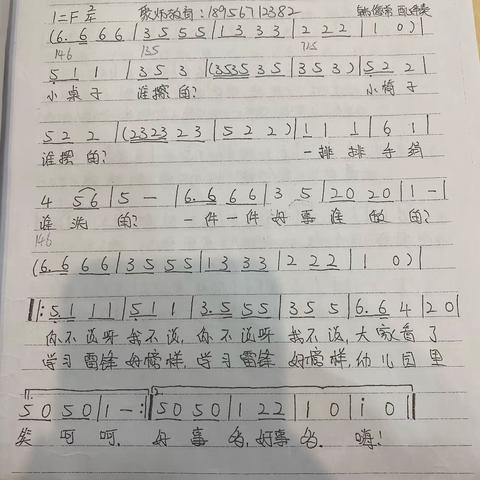 1=F 2/4 教师教育:18956712382
(6. 6 6 6 | 3 5 5 5 | 1 3 3 3 | 2 2 2 | 1 0 )|
146 135 715
5 1 1 | 3 5 3 |(3535 3 5 | 3 5 3 )| 5 2 2 |
小桌子 谁擦的? 小椅子
5 2 2 |(2323 2 3 | 5 2 2 )| 1 1 1 | 6 1 |
谁摆的? 一排排手绢
4 56 | 5 - | 6. 6 6 6 | 3 5 | 20 20 | 1 - |
谁洗的? 一件一件好事谁做的?
146
(6. 6 6 6 | 3 5 5 5 | 1 3 3 3 | 2 2 2 | 1 0 )|
‖: 5. 1 1 1 | 5 1 1 | 3. 5 5 5 | 3 5 5 | 6. 6 4 | 2 0 |
你不说呀我不说,你不说呀我不说,大家看了
学习雷锋好榜样,学习雷锋好榜样,幼儿园里
1. 2.
5 0 5 0 | 1 - :‖ 5 0 5 0 | 1 2 2 | 1 0 | i 0 ‖
笑呵呵. 好事多,好事多. 嗨!